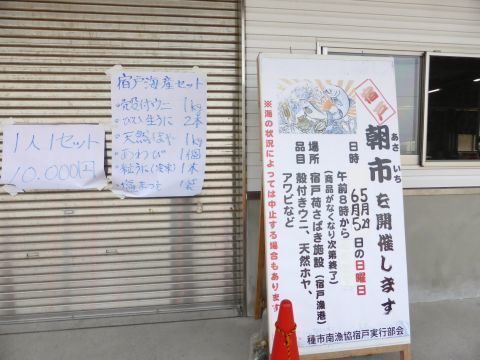 1人1セット
10,000円
宿戸海産セット
・殻付ウニ 1kg
・びん生うに 2本
・天然ほや 1kg
・あわび 1個
・粒うに(宿戸) 1本
・塩まつも 1袋
朝市を開催します
あさ いち
日時 5月29 日の日曜日
6月5
午前8時から
(商品がなくなり次第終了)
場所 宿戸荷さばき施設(宿戸漁港)
品目 殻付きウニ、天然ホヤ、
アワビなど
※海の状況によっては中止する場合もあります
種市南漁協宿戸実行部会